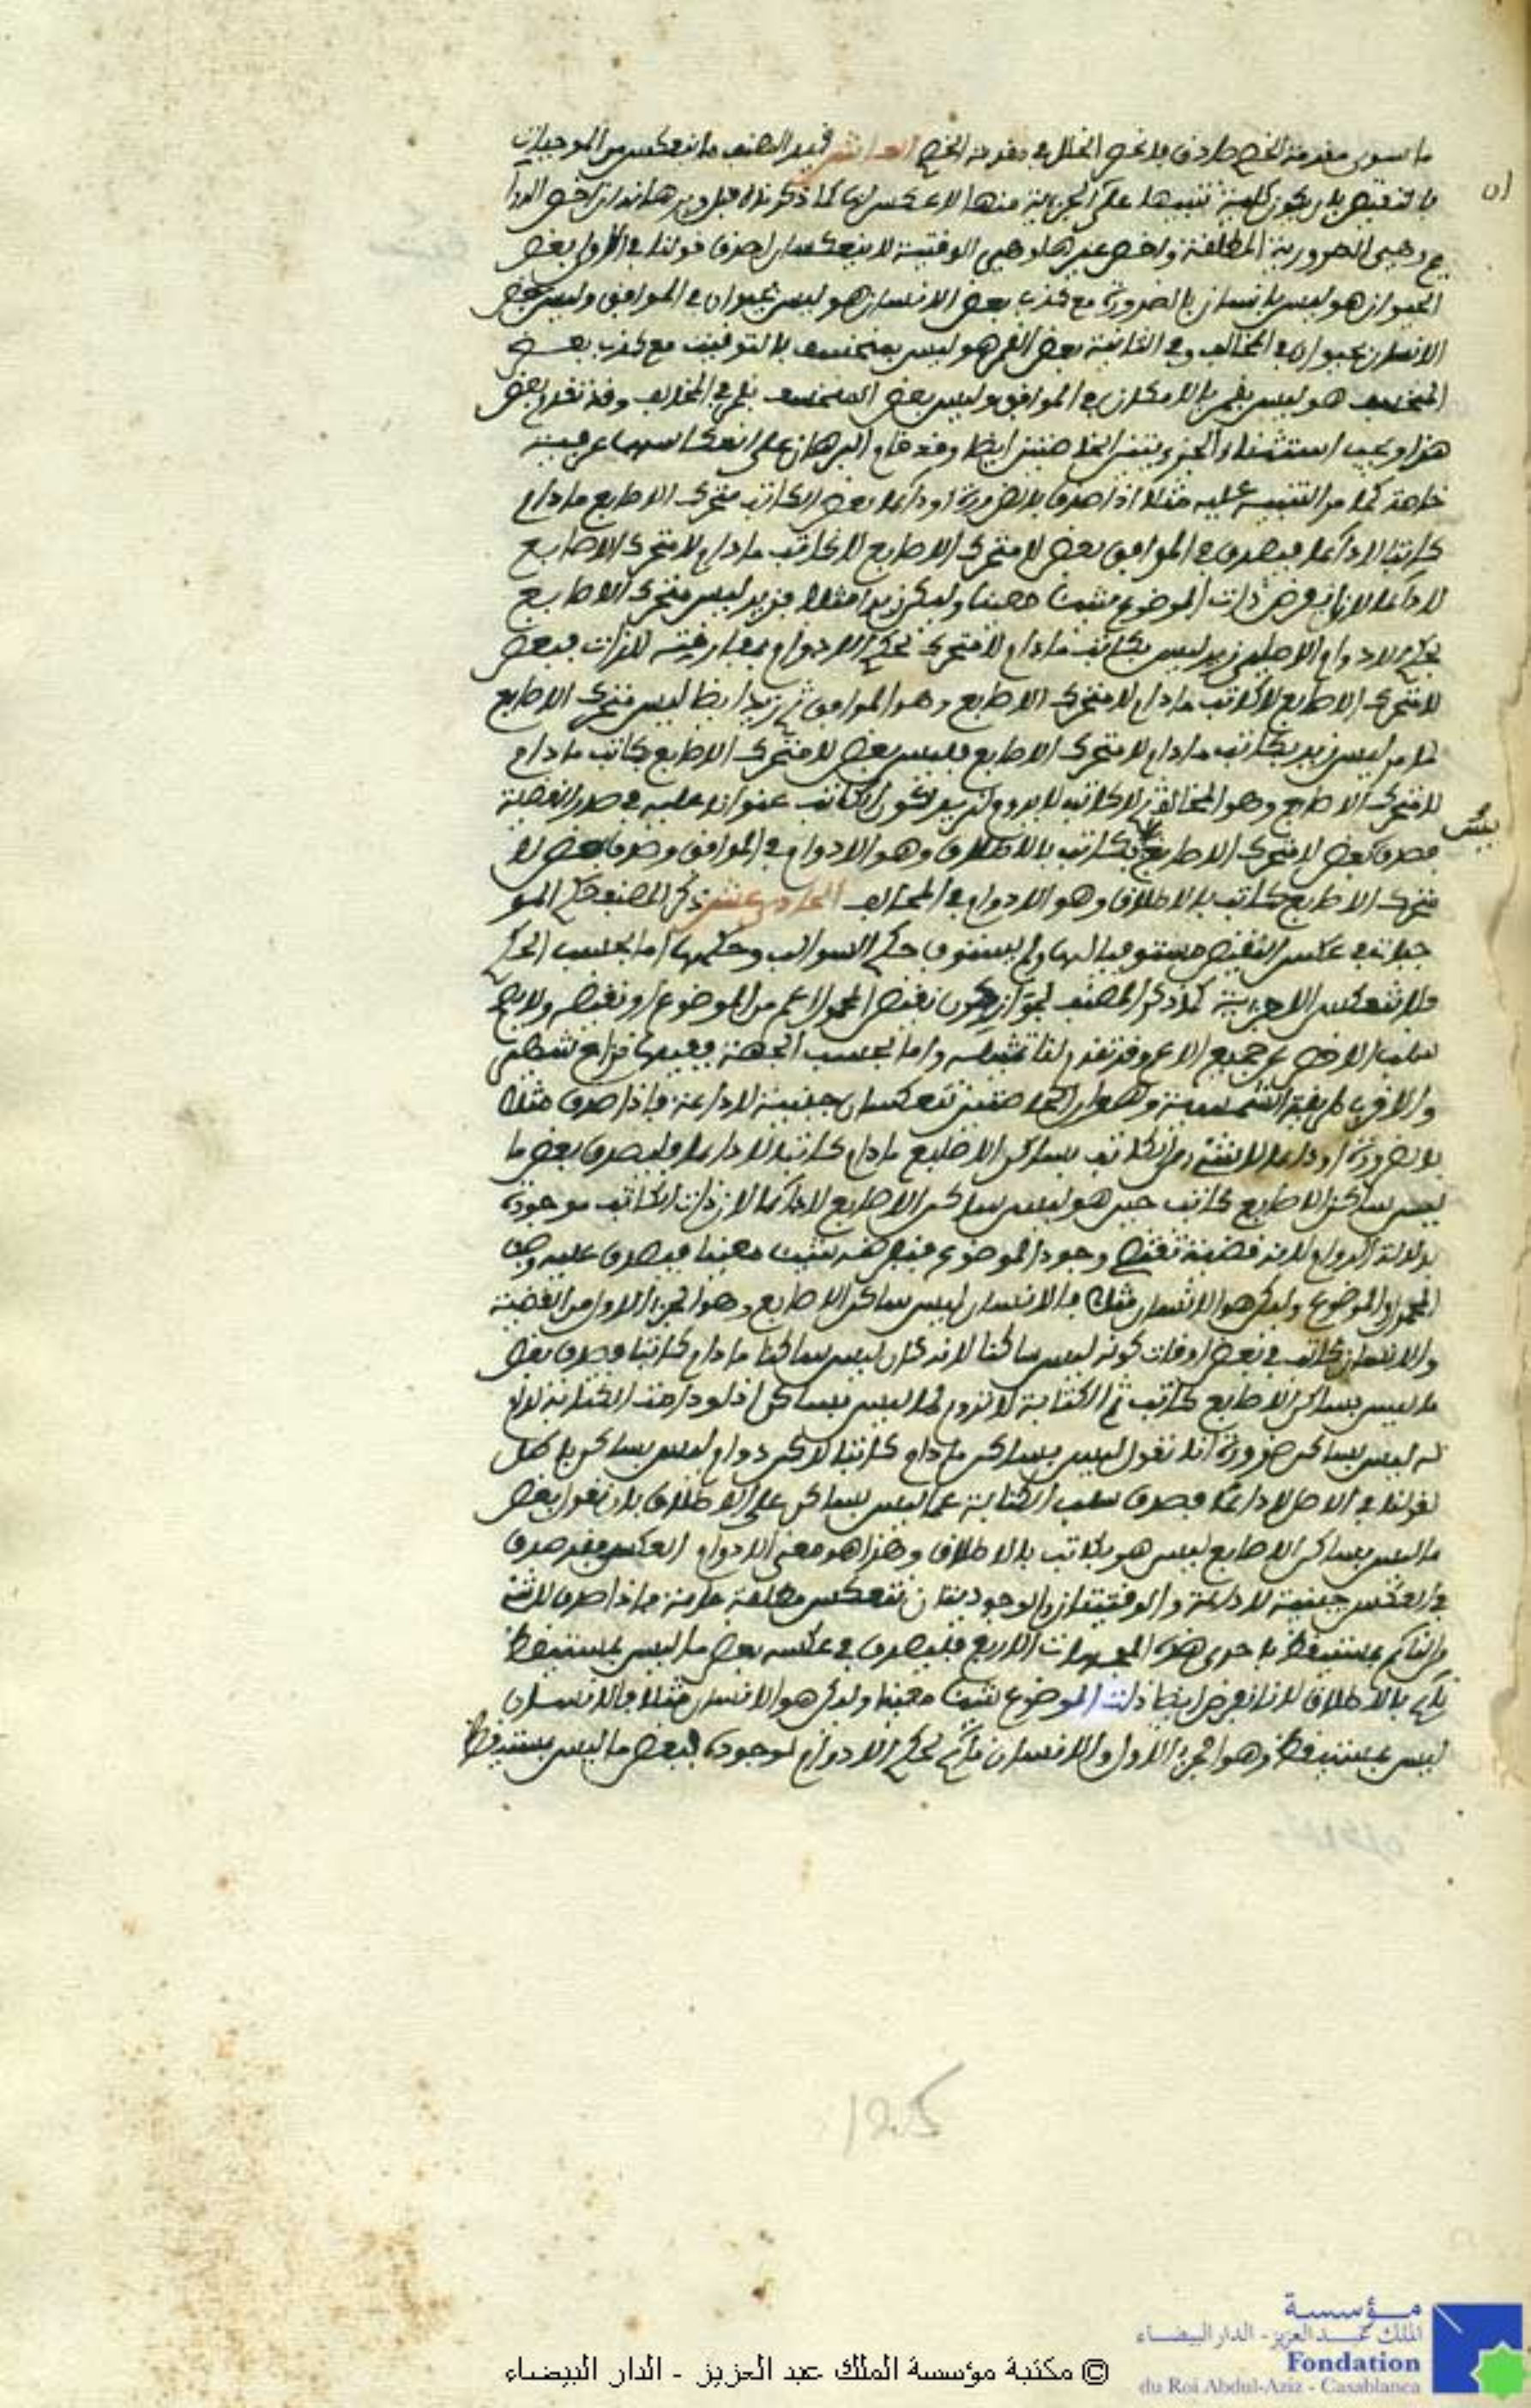 ما سوى مقدمة الخصم صادق فلا نخص الخلل في مقدمة الخصم العاشر قيد المصنف ما انعكس من الموجبات
بالنقيض بان يكون كلية تنبيها على ان الجزئية منها لا عكس لها كما ذكرناه قبل وبرهانه ان اخص الدوا
ئم وهي الضرورية المطلقة واخص غيرها وهي الوقتية لا ينعكسان لصدق قولنا في الاولى بعض
الحيوان هو ليس بانسان بالضرورة مع كذب بعض الانسان هو ليس بحيوان في الموافق وليس بعض
الانسان بحيوان في المخالف وفي الثانية بعض القمر هو ليس بمنخسف بالتوقيت مع كذب بعض
المنخسف هو ليس بقمر بالامكان في الموافق وليس بعض المنخسف بقمر في المخالف وقد تقدم بعض
هذا ويجب استثناء الجزئيتين الخاصتين ايضا وقد قام البرهان على انعكاسهما عرفية
خاصة كما مر التنبيه عليه مثلا اذا صدق بالضرورة او دائما بعض الكاتب متحرك الاصابع ما دام
كاتبا لا دائما فيصدق في الموافق بعض لا متحرك الاصابع لا كاتب ما دام لا متحرك الاصابع
لا دائما لانا نفرض ذات الموضوع شيئا معينا وليكن زيدا مثلا فزيد ليس متحرك الاصابع
بحكم لا دوام الاصل زيد ليس بكاتب ما دام لا متحرك بحكم اللادوام بمفارقته للذات فبعض
لا متحرك الاصابع لا كاتب ما دام لا متحرك الاصابع وهو الموافق ثم زيد ايضا ليس متحرك الاصابع
لما مر ليس زيد بكاتب ما دام لا متحرك الاصابع فليس بعض لا متحرك الاصابع بكاتب ما دام
لا متحرك الاصابع وهو المخالف لا كاتب لا بد وان يكون الكاتب عنوانا عليه في صدر القضية
فصدق بعض لا متحرك الاصابع بكاتب بالاطلاق وهو اللادوام في الموافق وصدق بعض لا
متحرك الاصابع كاتب بالاطلاق وهو اللادوام في المخالف الحادي عشر ذكر المصنف حكم المو
جبات في عكس النقيض مستوفيا لها ولم يستوف حكم السوالب وحكمها اما بحسب الكم
فلا تنعكس الا جزئية كما ذكر المصنف لجواز ان يكون نقيض المحمول اعم من الموضوع او نقيضه ولا يصح
سلب الاخص عن جميع الاعم وقد تقدم لنا تمثيله واما بحسب الجهة ففيها نزاع
والاقرب طريقة الشمسية وهو ان الخاصتين تنعكسان حينية لا دائمة فاذا صدق مثلا
بالضرورة او دائما لا شيء من الكاتب بساكن الاصابع ما دام كاتبا لا دائما فليصدق بعض ما
ليس بساكن الاصابع كاتب حين هو ليس بساكن الاصابع لا دائما لان ذات الكاتب موجودة
بدلالة الدوام لانه قضية تقتضي وجود الموضوع فنفرضه شيئا معينا فيصدق عليه وصف
المحمول والموضوع وليكن هو الانسان مثلا فالانسان ليس ساكن الاصابع وهو الجزء الاول من القضية
والانسان كاتب في بعض اوقات كونه ليس ساكنا لانه كان ليس ساكنا ما دام كاتبا فصدق بعض
ما ليس بساكن الاصابع كاتب ثم الكتابة لا تدوم لما ليس بساكن اذ لو دامت الكتابة لدام
له ليس بساكن ضرورة انا نقول ليس بساكن ما دام كاتبا لاكن دوام ليس بساكن باطل
لقولنا في الاصل لا دائما فصدق سلب الكتابة عما ليس بساكن على الاطلاق بان نقول بعض
ما ليس بساكن الاصابع ليس هو بكاتب بالاطلاق وهذا هو معنى اللادوام العكس فقد صدق
في العكس حينية لا دائمة والوقتيتان والوجوديتان تنعكس مطلقة عامة فاذا صدق لا شيء
من النائم بمستيقظ باحدى هذه الجهات الاربع فليصدق في عكسه بعض ما ليس بمستيقظ
نائم بالاطلاق لانا نفرض ايضا ذات الموضوع شيئا معينا وليكن هو الانسان مثلا فالانسان
ليس بمستيقظ وهو الجزء الاول والانسان نائم بحكم اللادوام لوجوده فبعض ما ليس بمستيقظ
125
مؤسسة
الملك عبد العزيز - الدار البيضاء
Fondation
du Roi Abdul-Aziz - Casablanca
© مكتبة مؤسسة الملك عبد العزيز - الدار البيضاء